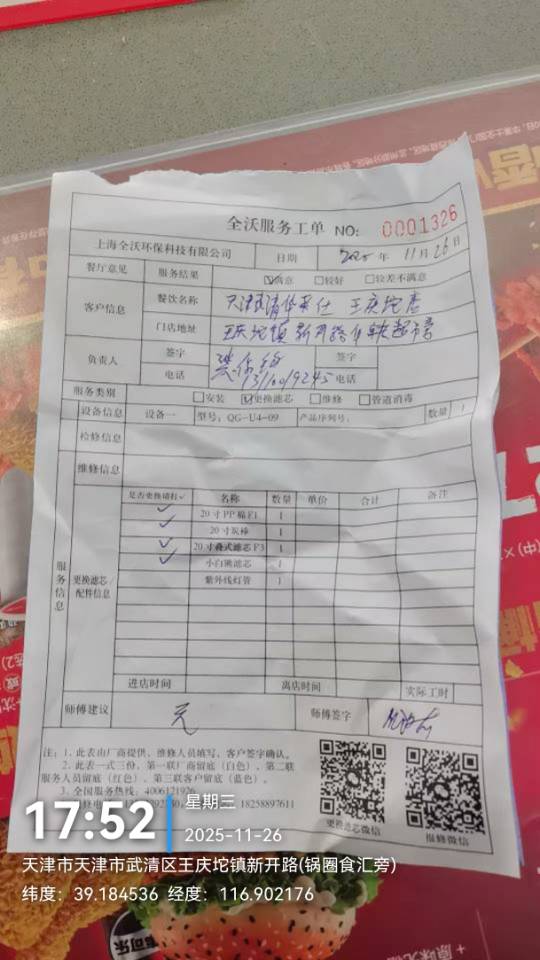 全沃服务工单 NO: 0001326
上海全沃环保科技有限公司 日期 2025 年 11 月 26 日
餐厅意见 服务结果 ☑满意 □较好 □较差不满意
客户信息 餐饮名称 天津武清华莱仕 王庆坨店
门店地址 王庆坨镇新开路
负责人 签字 签字
电话 电话
服务类别 □安装 ☑更换滤芯 □维修 □管道消毒
设备信息 设备一 型号: QG-U4-09 产品序列号: 数量 1
检修信息
维修信息
服务信息 更换滤芯/配件信息
是否更换请打✓ 名称 数量 单价 合计 备注
✓ 20寸PP棉F1 1
✓ 20寸炭棒 1
✓ 20寸叠式滤芯F3 1
✓ 小白熊滤芯 1
紫外线灯管 1
进店时间 离店时间 实际工时
师傅建议 无 师傅签字
注: 1. 此表由厂商提供、维修人员填写、客户签字确认。
2. 此表一式三份、第一联厂商留底（白色）、第二联
服务人员留底（红色）、第三联客户留底（蓝色）。
3. 全国服务热线: 4006121926
18258897611
更换滤芯微信 报修微信
17:52 星期三
2025-11-26
天津市天津市武清区王庆坨镇新开路(锅圈食汇旁)
纬度: 39.184536 经度: 116.902176